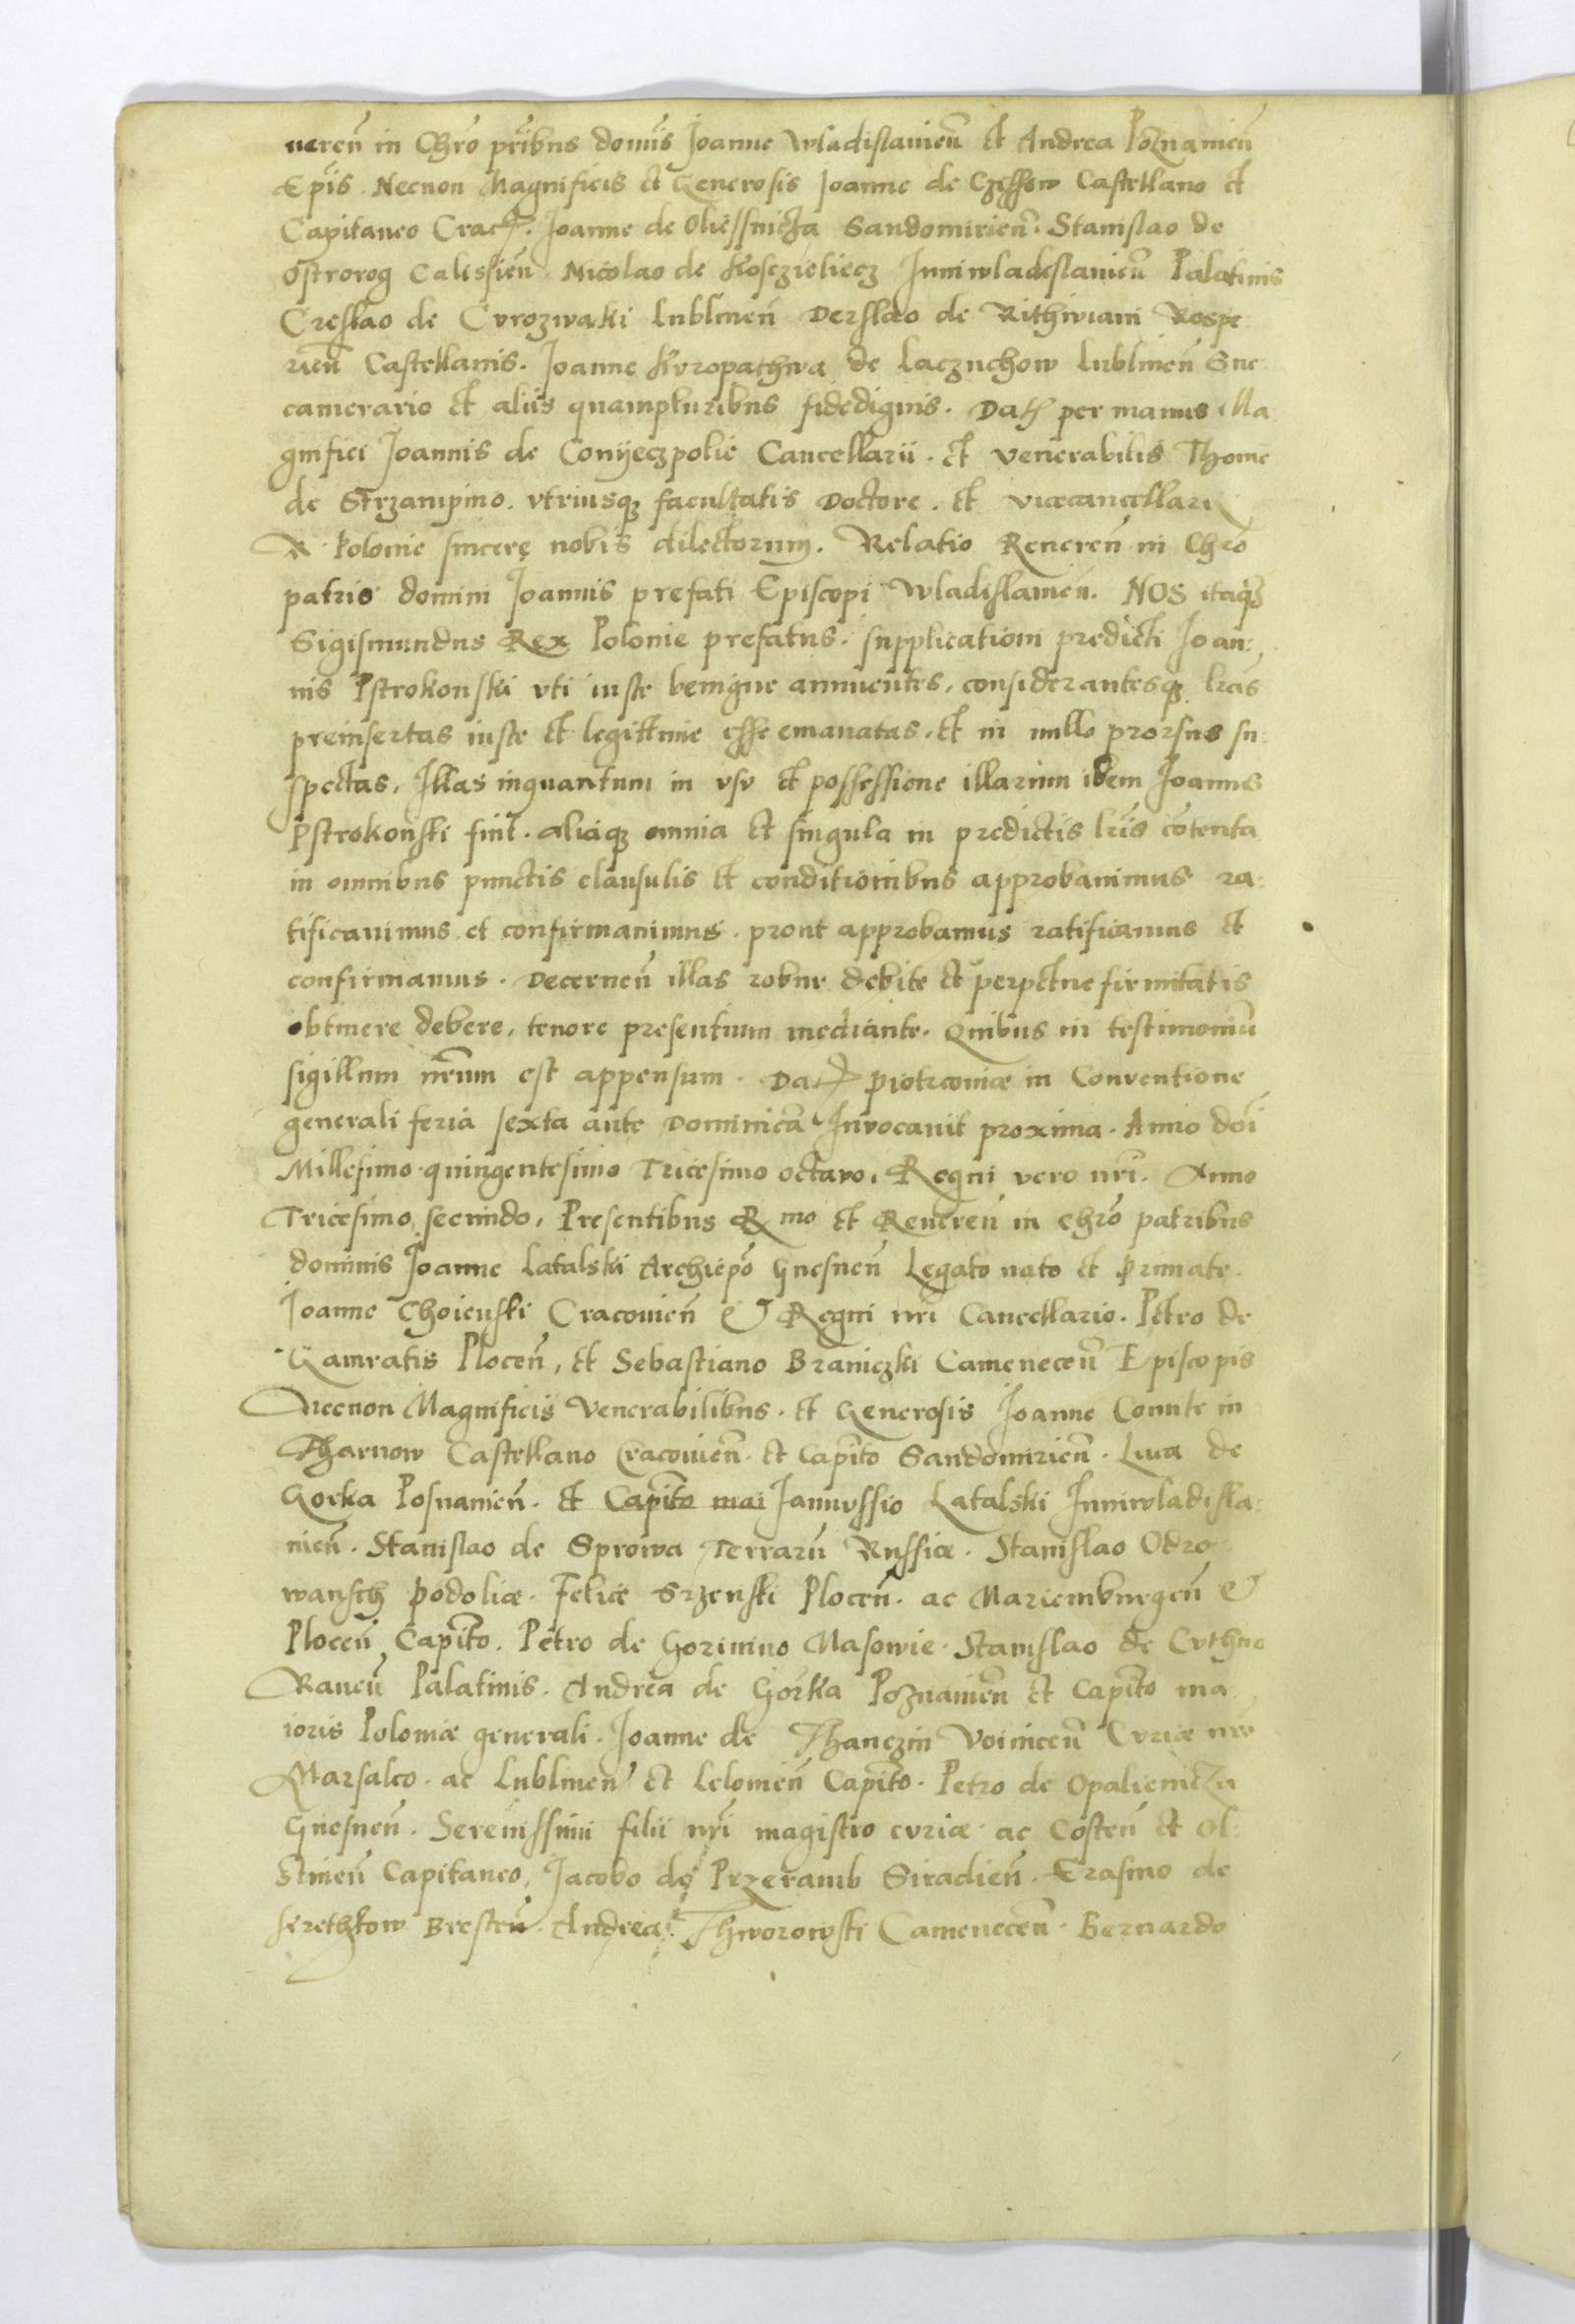 ueren̄ in Chr̄o pr̄ibus dom̄is Joanne Wladislauien̄ et Andrea Poznanien̄
Ep̄is. Necnon Magnificis et Generosis Joanne de Czisszow Castellano et
Capitaneo Crac. Joanne de Oliessnicza Sandomirien̄. Stanislao de
Ostrorog Calissien̄. Nicolao de Kosczieliecz Juniwladislauien̄ Palatinis
Creslao de Curozwaki Lublinen̄ Derslao de Rithwiani Rospe
rien̄ Castellanis. Joanne Kuropathwa de Laczuchow Lublinen̄ Suc
camerario et aliis quampluribus fidedignis. Dat per manus Ma:
gnifici Joannis de Conyeczpolie Cancellarii. et venerabilis Thome
de Strzampino. vtriusq; facultatis Doctore. et vicecancellari
R. Polonie sincere nobis dilectorum. Relatio Reueren̄ in Chr̄o
patris domini Joannis prefati Episcopi Wladislauien̄. NOS itaq;
Sigismundus Rex Polonie prefatus. supplicationi predicti Joan:
nis Pstrokonski vti iuste benigne annuentes, considerantesq; lr̄as
preinsertas iuste et legittime esse emanatas. et in nullo prorsus su:
spectas, Illas inquantum in vsu et possessione illarum idem Joannes
Pstrokonski fuit. aliaq; omnia et singula in predictis lr̄is cōtenta
in omnibus punctis clausulis et conditionibus approbauimus ra:
tificauimus et confirmauimus. prout approbamus ratificamus et
confirmamus. Decernen̄ illas robur debite et perpetue firmitatis
obtinere debere, tenore presentium mediante. Quibus in testimoniū
sigillum nr̄um est appensum. Dat Piotrcouiæ in Conventione
generali feria sexta ante Dominicā Invocauit proxima. Anno dn̄i
Millesimo quingentesimo Tricesimo octavo. Regni vero nr̄i. Anno
Tricesimo secundo, Presentibus R mo et Reueren̄ in Chr̄o patribus
dominis Joanne Latalski Archiep̄o Gnesnen̄ Legato nato et primate.
Joanne Choienski Cracouien̄ & Regni nr̄i Cancellario. Petro de
Gamratis Plocen̄, et Sebastiano Braniczki Camenecen̄ Episcopis
Necnon Magnificis Venerabilibus. et Generosis Joanne Comite in
Tharnow Castellano Cracouien̄. et Capit̄o Sandomirien̄. Luca de
Gorka Posnanien̄. et Capit̄o mai Januvssio Latalski Juniwladisla:
uien̄. Stanislao de Sprowa Terrarū Russiæ. Stanislao Odro
wansch Podoliæ. Felice Srzenski Plocen̄. ac Mariemburgen̄ &
Plocen̄ Capit̄o. Petro de Gorinino Masowie. Stanislao de Cuthno
Rauen̄ Palatinis. Andrea de Gorka Poznanien̄ et Capit̄o ma
ioris Poloniæ generali. Joanne de Thanczin Voinicen̄ Curiæ nr̄e
Marsalco. ac Lublinen̄ et Lelouien̄ Capit̄o. Petro de Opalienicza
Gnesnen̄. Serenissimi filii nr̄i magistro curiæ ac Costen̄ et Ol:
stinen̄ Capitaneo, Jacobo de Przeramb Siradien̄. Erasmo de
Krethkow Bresten̄. Andrea Thworowski Camenecen̄. Bernardo